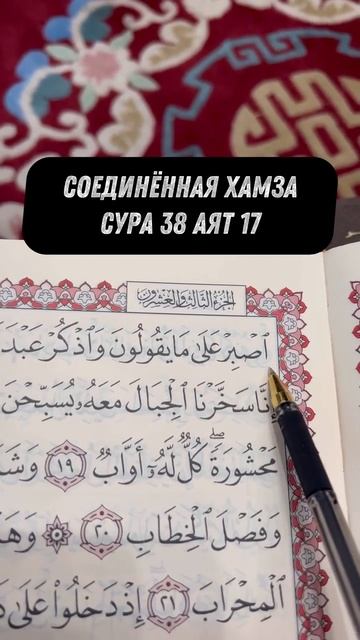 СОЕДИНЁННАЯ ХАМЗА
СУРА 38 АЯТ 17
الجزء الثالث والعشرون
ٱصْبِرْ عَلَىٰ مَا يَقُولُونَ وَٱذْكُرْ عَبْدَ
إِنَّا سَخَّرْنَا ٱلْجِبَالَ مَعَهُۥ يُسَبِّحْنَ
مَحْشُورَةًۖ كُلٌّ لَّهُۥٓ أَوَّابٌ ١٩
وَفَصْلَ ٱلْخِطَابِ ٢٠
ٱلْمِحْرَابَ ٢١ إِذْ دَخَلُوا۟ عَلَىٰ